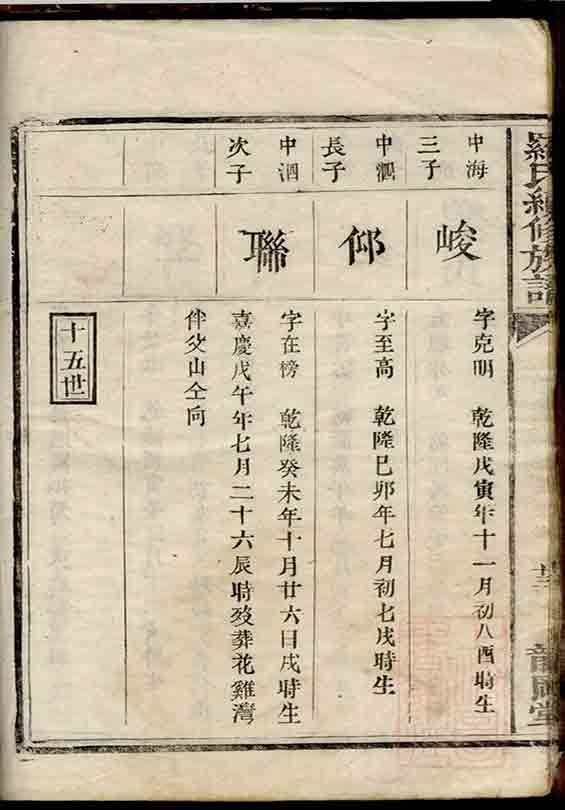 羅氏續修族譜
中海
三子
峻
字克明 乾隆戊寅年十一月初八酉時生
中泗
長子
仰
字至高 乾隆己卯年七月初七戌時生
中泗
次子
聯
字在榜 乾隆癸未年十月廿六日戌時生
嘉慶戊午年七月二十六辰時歿葬花雞灣
伴父山仝向
十五世